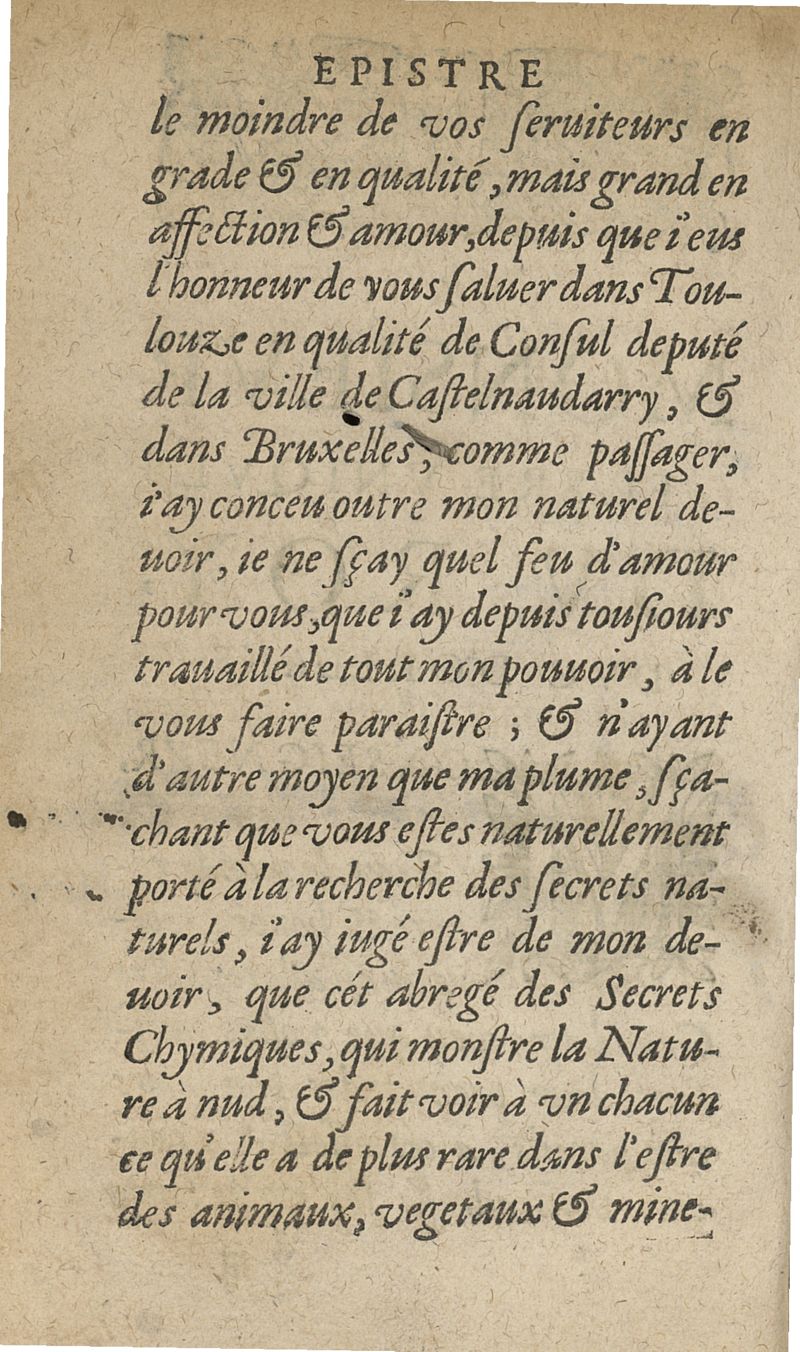 EPISTRE
le moindre de vos ſeruiteurs en
grade & en qualité, mais grand en
affection & amour, depuis que i'eus
l'honneur de vous ſaluer dans Tou-
louze en qualité de Conſul deputé
de la ville de Caſtelnaudarry, &
dans Bruxelles, comme paſſager,
i'ay conceu outre mon naturel de-
uoir, ie ne ſçay quel feu d'amour
pour vous, que i'ay depuis touſiours
trauaillé de tout mon pouuoir, à le
vous faire paraiſtre ; & n'ayant
d'autre moyen que ma plume, ſça-
chant que vous eſtes naturellement
porté à la recherche des ſecrets na-
turels, i'ay iugé eſtre de mon de-
uoir, que cét abregé des Secrets
Chymiques, qui monſtre la Natu-
re à nud, & fait voir à vn chacun
ce qu'elle a de plus rare dans l'eſtre
des animaux, vegetaux & mine-